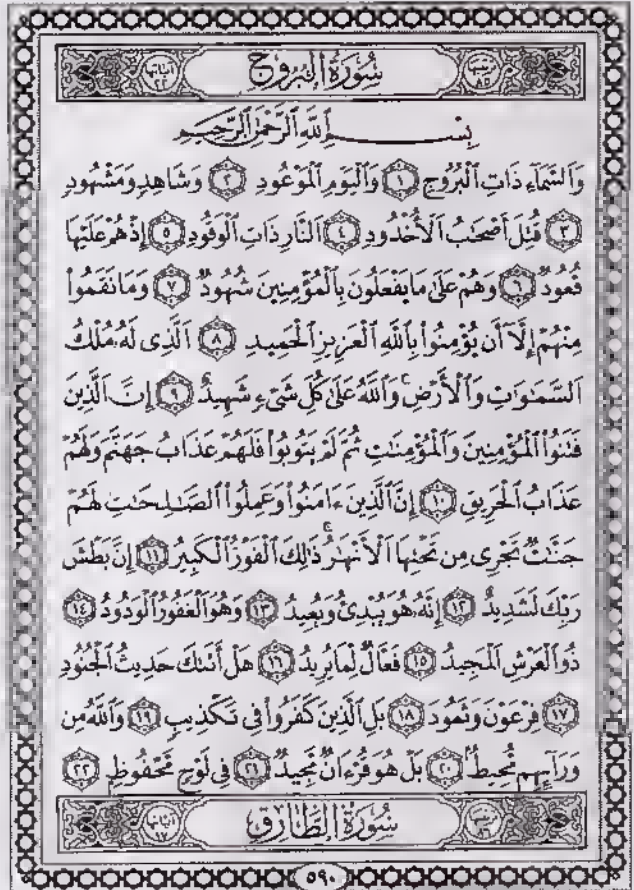 ترتيبها ٨٥ سُورَةُ الْبُرُوجِ آياتها ٢٢
بِسْمِ اللَّهِ الرَّحْمَٰنِ الرَّحِيمِ
وَٱلسَّمَآءِ ذَاتِ ٱلْبُرُوجِ ١ وَٱلْيَوْمِ ٱلْمَوْعُودِ ٢ وَشَاهِدٍ وَمَشْهُودٍ
٣ قُتِلَ أَصْحَٰبُ ٱلْأُخْدُودِ ٤ ٱلنَّارِ ذَاتِ ٱلْوَقُودِ ٥ إِذْ هُمْ عَلَيْهَا
قُعُودٌ ٦ وَهُمْ عَلَىٰ مَا يَفْعَلُونَ بِٱلْمُؤْمِنِينَ شُهُودٌ ٧ وَمَا نَقَمُوا۟
مِنْهُمْ إِلَّآ أَن يُؤْمِنُوا۟ بِٱللَّهِ ٱلْعَزِيزِ ٱلْحَمِيدِ ٨ ٱلَّذِى لَهُۥ مُلْكُ
ٱلسَّمَٰوَٰتِ وَٱلْأَرْضِ ۚ وَٱللَّهُ عَلَىٰ كُلِّ شَىْءٍ شَهِيدٌ ٩ إِنَّ ٱلَّذِينَ
فَتَنُوا۟ ٱلْمُؤْمِنِينَ وَٱلْمُؤْمِنَٰتِ ثُمَّ لَمْ يَتُوبُوا۟ فَلَهُمْ عَذَابُ جَهَنَّمَ وَلَهُمْ
عَذَابُ ٱلْحَرِيقِ ١٠ إِنَّ ٱلَّذِينَ ءَامَنُوا۟ وَعَمِلُوا۟ ٱلصَّٰلِحَٰتِ لَهُمْ
جَنَّٰتٌ تَجْرِى مِن تَحْتِهَا ٱلْأَنْهَٰرُ ۚ ذَٰلِكَ ٱلْفَوْزُ ٱلْكَبِيرُ ١١ إِنَّ بَطْشَ
رَبِّكَ لَشَدِيدٌ ١٢ إِنَّهُۥ هُوَ يُبْدِئُ وَيُعِيدُ ١٣ وَهُوَ ٱلْغَفُورُ ٱلْوَدُودُ ١٤
ذُو ٱلْعَرْشِ ٱلْمَجِيدُ ١٥ فَعَّالٌ لِّمَا يُرِيدُ ١٦ هَلْ أَتَىٰكَ حَدِيثُ ٱلْجُنُودِ
١٧ فِرْعَوْنَ وَثَمُودَ ١٨ بَلِ ٱلَّذِينَ كَفَرُوا۟ فِى تَكْذِيبٍ ١٩ وَٱللَّهُ مِن
وَرَآئِهِم مُّحِيطٌۢ ٢٠ بَلْ هُوَ قُرْءَانٌ مَّجِيدٌ ٢١ فِى لَوْحٍ مَّحْفُوظٍۭ ٢٢
ترتيبها ٨٦ سُورَةُ الطَّارِقِ آياتها ١٧
٥٩٠